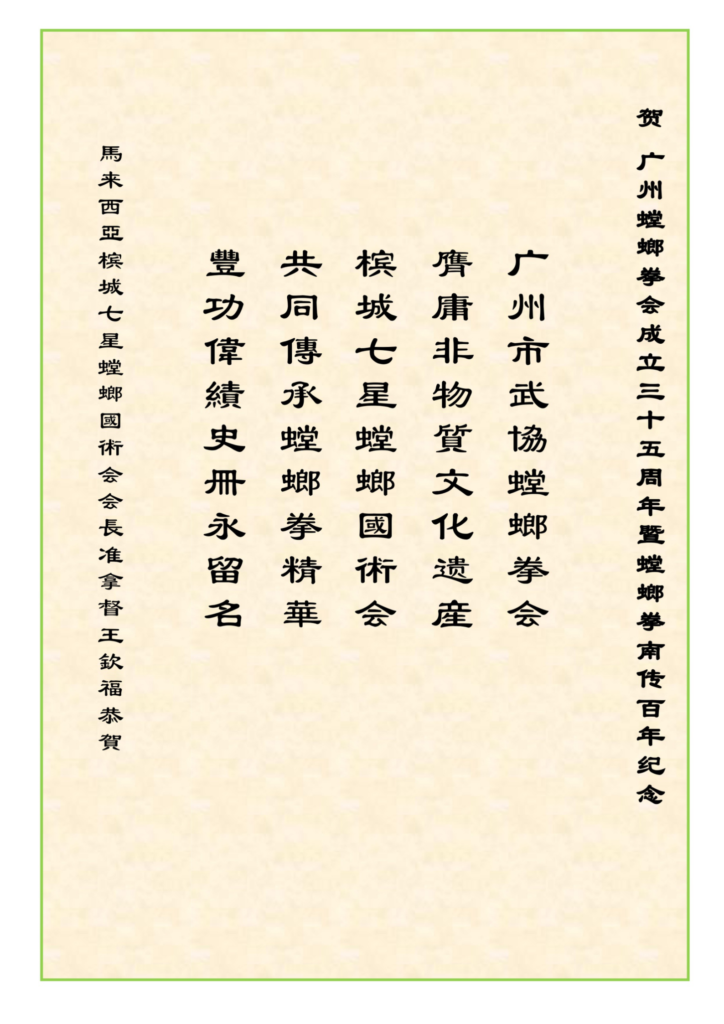 贺 广州螳螂拳会成立三十五周年暨螳螂拳南传百年纪念
广州市武協螳螂拳会
膺庸非物質文化遗産
槟城七星螳螂國術会
共同傳承螳螂拳精華
豐功偉績史冊永留名
馬来西亞槟城七星螳螂國術会会長准拿督王欽福恭賀